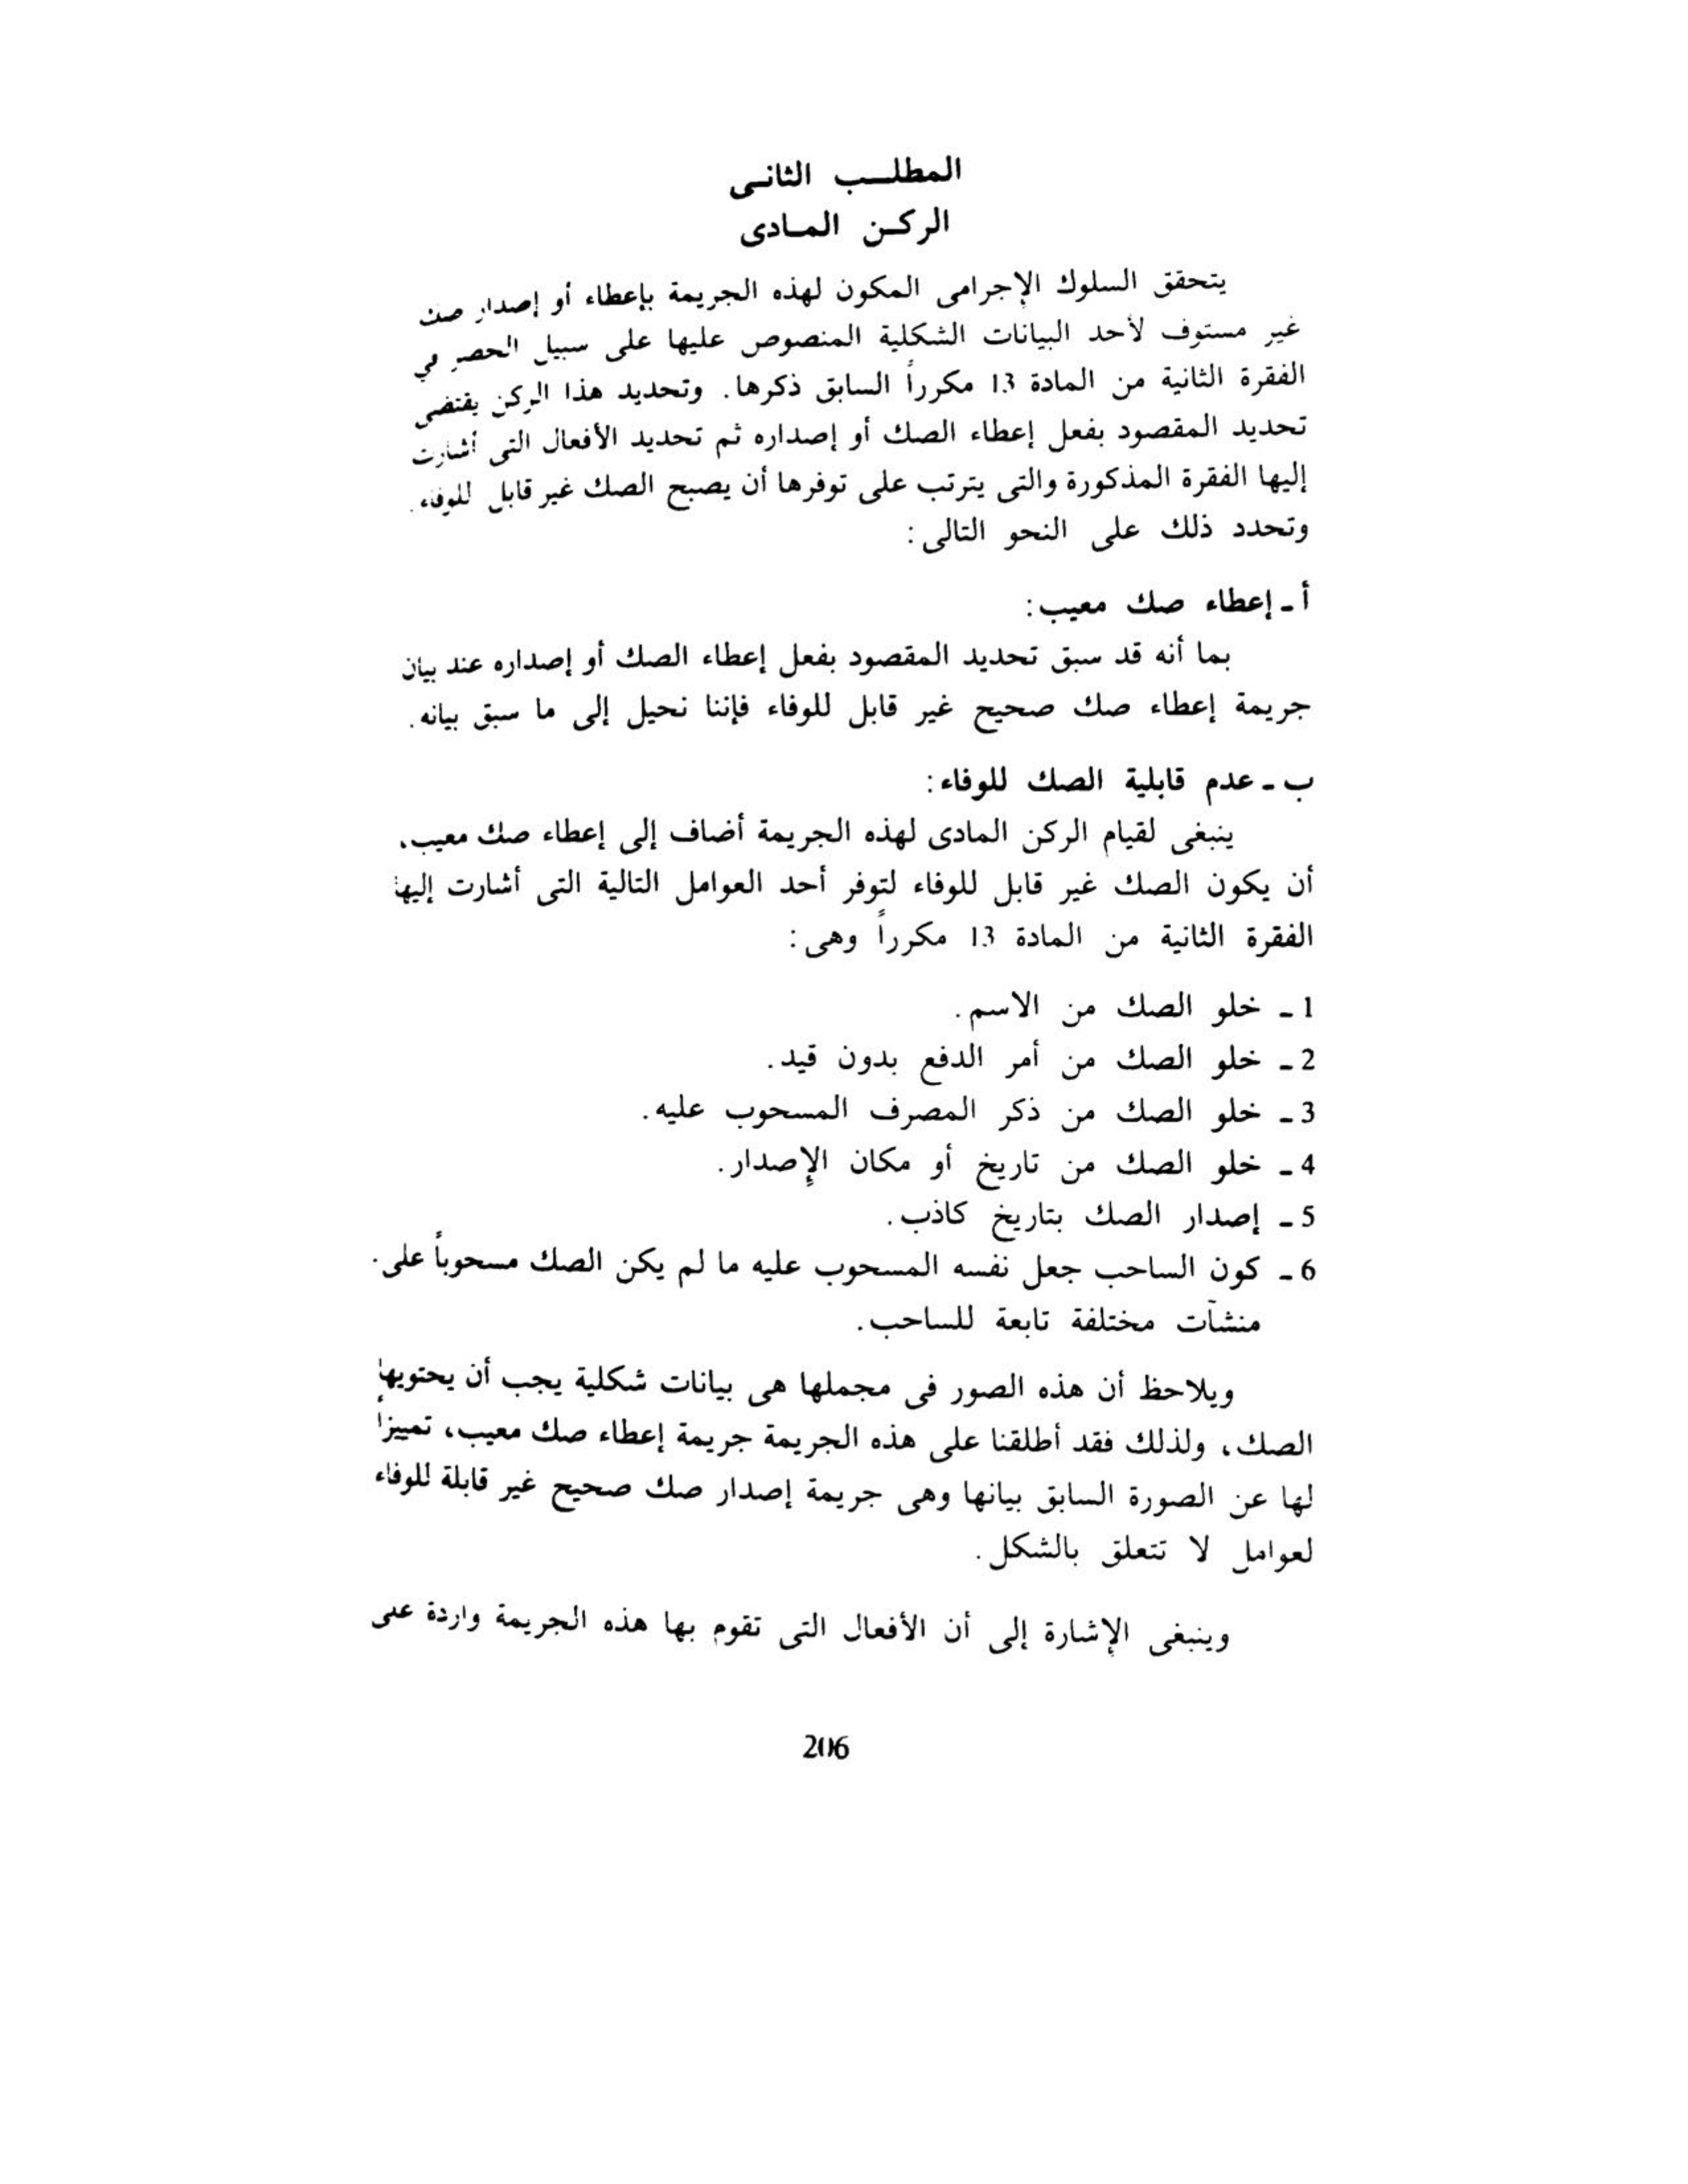 المطلب الثانى
الركن المادى
يتحقق السلوك الإجرامى المكون لهذه الجريمة بإعطاء أو إصدار صك
غير مستوف لأحد البيانات الشكلية المنصوص عليها على سبيل الحصر في
الفقرة الثانية من المادة 13 مكرراً السابق ذكرها. وتحديد هذا الركن يقتضى
تحديد المقصود بفعل إعطاء الصك أو إصداره ثم تحديد الأفعال التى أشارت
إليها الفقرة المذكورة والتى يترتب على توفرها أن يصبح الصك غير قابل للوفاء.
وتحدد ذلك على النحو التالى:
أ ـ إعطاء صك معيب:
بما أنه قد سبق تحديد المقصود بفعل إعطاء الصك أو إصداره عند بيان
جريمة إعطاء صك صحيح غير قابل للوفاء فإننا نحيل إلى ما سبق بيانه.
ب ـ عدم قابلية الصك للوفاء:
ينبغى لقيام الركن المادى لهذه الجريمة أضاف إلى إعطاء صك معيب،
أن يكون الصك غير قابل للوفاء لتوفر أحد العوامل التالية التى أشارت إليها
الفقرة الثانية من المادة 13 مكرراً وهى:
1 ـ خلو الصك من الاسم.
2 ـ خلو الصك من أمر الدفع بدون قيد.
3 ـ خلو الصك من ذكر المصرف المسحوب عليه.
4 ـ خلو الصك من تاريخ أو مكان الإصدار.
5 ـ إصدار الصك بتاريخ كاذب.
6 ـ كون الساحب جعل نفسه المسحوب عليه ما لم يكن الصك مسحوباً على
منشآت مختلفة تابعة للساحب.
ويلاحظ أن هذه الصور فى مجملها هى بيانات شكلية يجب أن يحتويها
الصك، ولذلك فقد أطلقنا على هذه الجريمة جريمة إعطاء صك معيب، تمييزاً
لها عن الصورة السابق بيانها وهى جريمة إصدار صك صحيح غير قابلة للوفاء
لعوامل لا تتعلق بالشكل.
وينبغى الإشارة إلى أن الأفعال التى تقوم بها هذه الجريمة واردة على
206